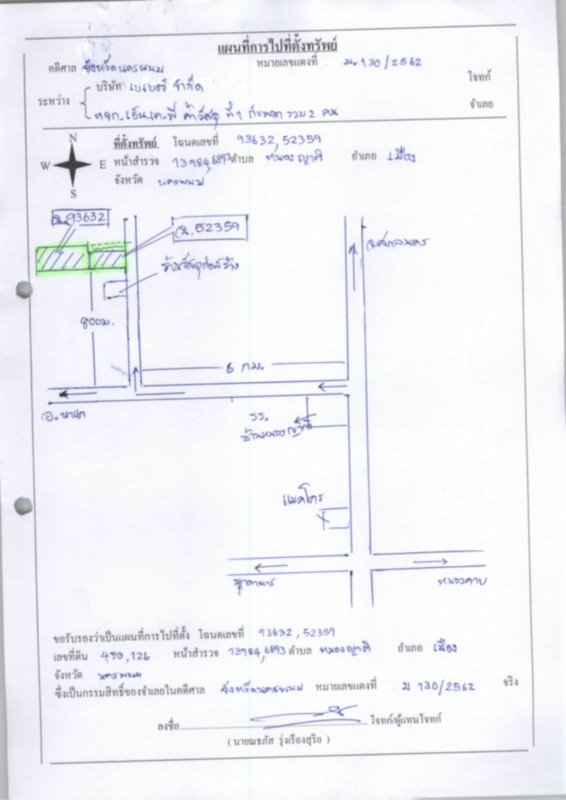 แผนที่การไปที่ตั้งทรัพย์
คดีศาล จังหวัดนครพนม หมายเลขแดงที่ ผ.130/2562
บริษัท เบเยอร์ จำกัด โจทก์
ระหว่าง
หจก.เอ็น.เค.พี ค้าวัสดุ ที่ 1 กับพวกรวม 2 คน จำเลย
ที่ตั้งทรัพย์ โฉนดเลขที่ 93632, 52359
หน้าสำรวจ 13984, 6893 ตำบล หนองญาติ อำเภอ เมือง
จังหวัด นครพนม
N
W E
S
ฉ.93632
ฉ.52359
800ม.
6 กม.
อ.นาแก
รร.
บ้านหนองญาติ
แมคโคร
หนองคาย
ขอรับรองว่าเป็นแผนที่การไปที่ตั้ง โฉนดเลขที่ 93632, 52359
เลขที่ดิน 490, 126 หน้าสำรวจ 13984, 6893 ตำบล หนองญาติ อำเภอ เมือง
จังหวัด นครพนม
ซึ่งเป็นกรรมสิทธิ์ของจำเลยในคดีศาล จังหวัดนครพนม หมายเลขแดงที่ ผ 130/2562 จริง
ลงชื่อ โจทก์/ผู้แทนโจทก์
(นายณธภัส รุ่งเรืองสุริย)